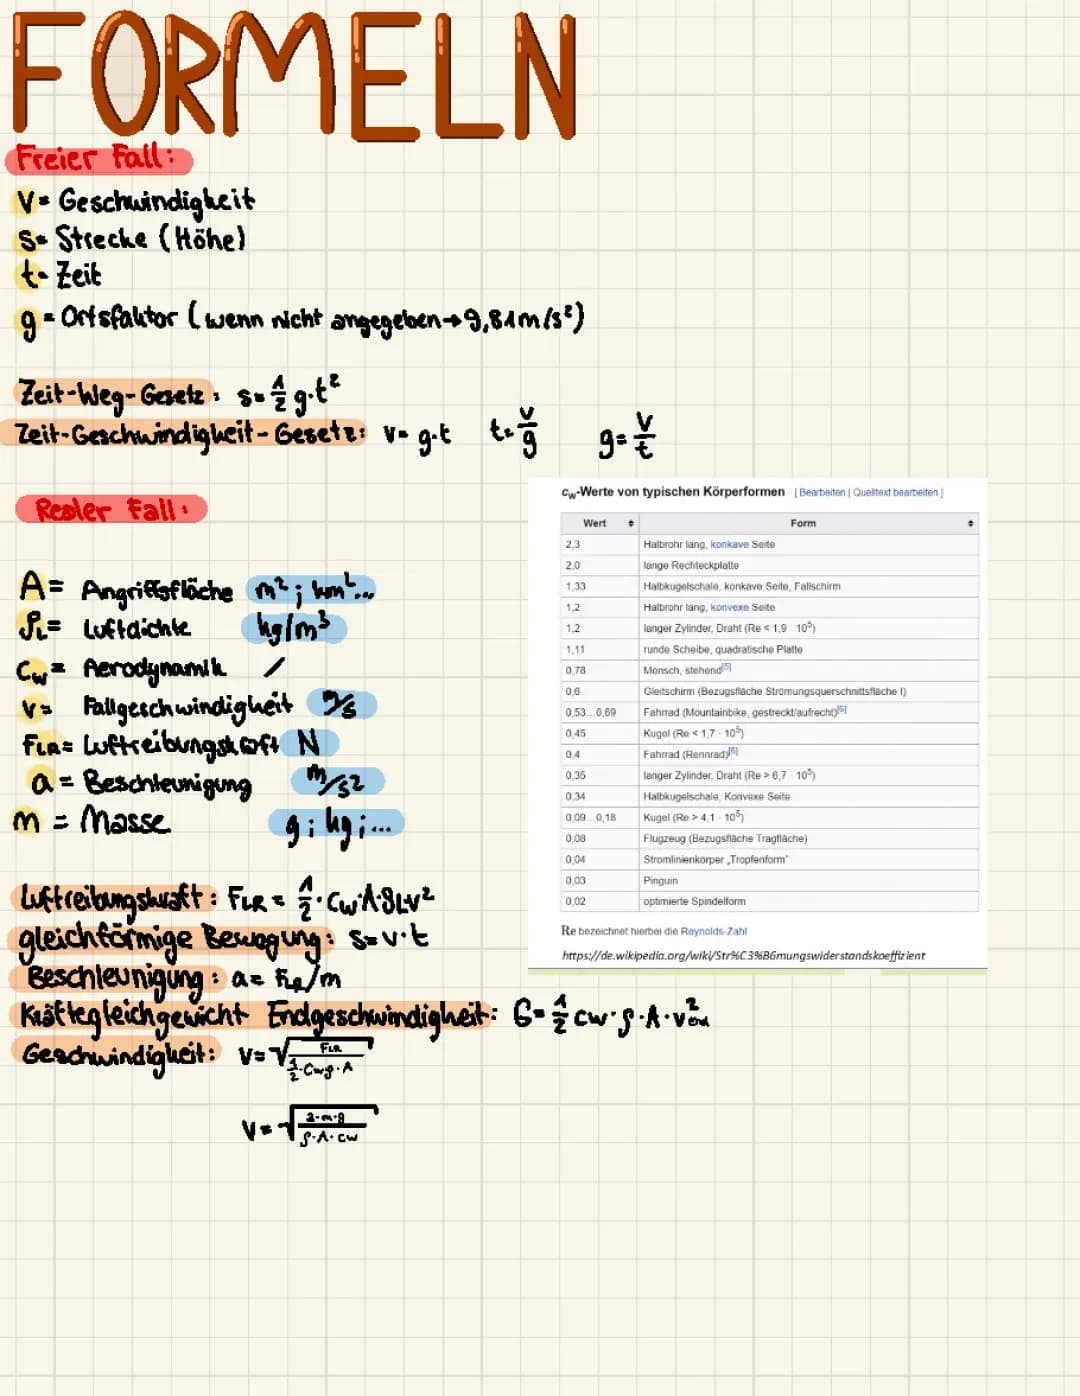 FORMELN
Freier Fall:
V= Geschwindigkeit
S= Strecke (Höhe)
t= Zeit
g= Ortsfaktor (wenn nicht angegeben→9,81m/s²)
Zeit-Weg-Gesetz: s=½ g·t²
Zeit-Geschwindigkeit-Gesetz: v= g·t t=v/g g=v/t
Realer Fall:
A= Angriffsfläche m²; km²...
ρL= Luftdichte kg/m³
Cw= Aerodynamik /
v= Fallgeschwindigkeit m/s
FLR= Luftreibungskraft N
a= Beschleunigung m/s²
m = Masse g; kg;...
Luftreibungskraft: FLR = ½·Cw·A·ρL·v²
gleichförmige Bewegung: s=v·t
Beschleunigung: a= FLR/m
Kräftegleichgewicht Endgeschwindigkeit: G=½ cw·ρ·A·v²
Geschwindigkeit: v=√(FLR/(½·Cw·ρ·A))
v=√((2·m·g)/(ρ·A·cw))
cw-Werte von typischen Körperformen [ Bearbeiten | Quelltext bearbeiten ]
Wert Form
2,3 Halbrohr lang, konkave Seite
2,0 lange Rechteckplatte
1,33 Halbkugelschale, konkave Seite, Fallschirm
1,2 Halbrohr lang, konvexe Seite
1,2 langer Zylinder, Draht (Re < 1,9 10⁵)
1,11 runde Scheibe, quadratische Platte
0,78 Mensch, stehend[5]
0,6 Gleitschirm (Bezugsfläche Strömungsquerschnittsfläche !)
0,53...0,69 Fahrrad (Mountainbike, gestreckt/aufrecht)[6]
0,45 Kugel (Re < 1,7 · 10⁵)
0,4 Fahrrad (Rennrad)[6]
0,35 langer Zylinder, Draht (Re > 6,7 10⁵)
0,34 Halbkugelschale, Konvexe Seite
0,09...0,18 Kugel (Re > 4,1 · 10⁵)
0,08 Flugzeug (Bezugsfläche Tragfläche)
0,04 Stromlinienkörper „Tropfenform"
0,03 Pinguin
0,02 optimierte Spindelform
Re bezeichnet hierbei die Reynolds-Zahl
https://de.wikipedia.org/wiki/Str%C3%B6mungswiderstandskoeffizient